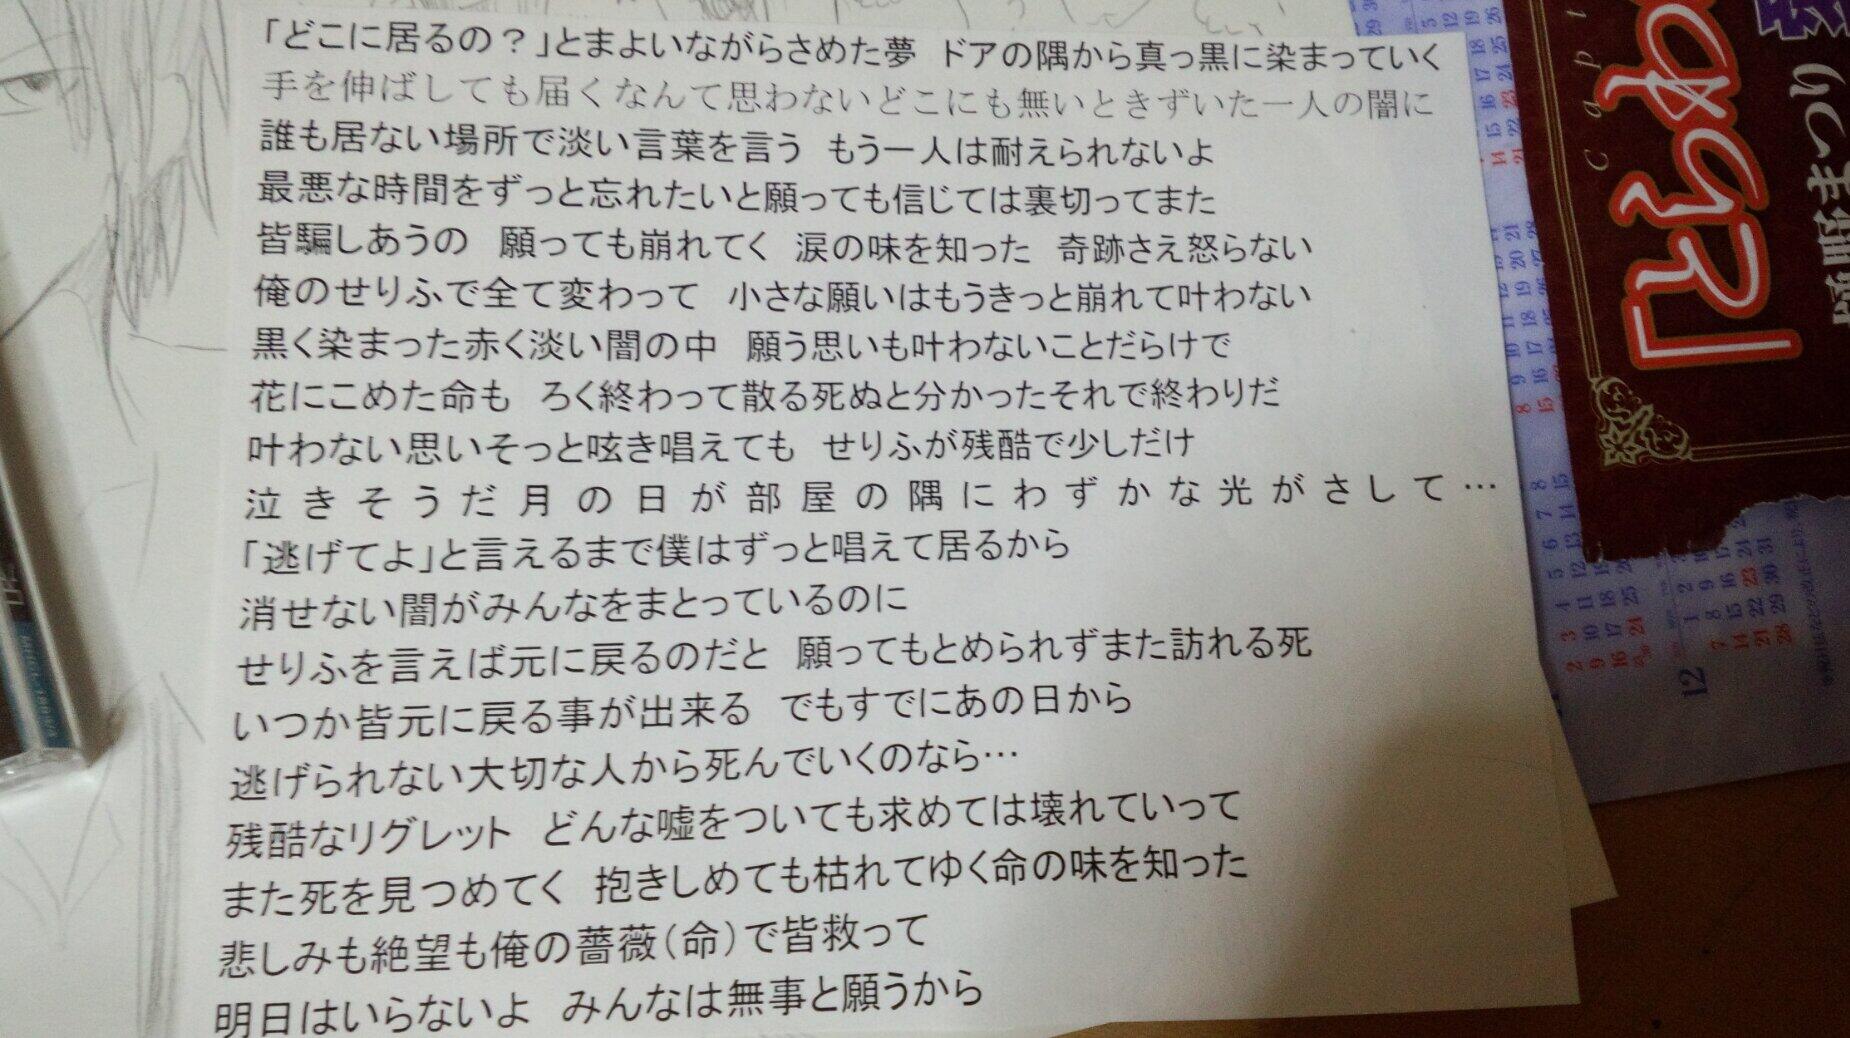 「どこに居るの？」とまよいながらさめた夢　ドアの隅から真っ黒に染まっていく
手を伸ばしても届くなんて思わないどこにも無いときずいた一人の闇に
誰も居ない場所で淡い言葉を言う　もう一人は耐えられないよ
最悪な時間をずっと忘れたいと願っても信じては裏切ってまた
皆騙しあうの　願っても崩れてく　涙の味を知った　奇跡さえ怒らない
俺のせりふで全て変わって　小さな願いはもうきっと崩れて叶わない
黒く染まった赤く淡い闇の中　願う思いも叶わないことだらけで
花にこめた命も　ろく終わって散る死ぬと分かったそれで終わりだ
叶わない思いそっと呟き唱えても　せりふが残酷で少しだけ
泣きそうだ月の日が部屋の隅にわずかな光がさして…
「逃げてよ」と言えるまで僕はずっと唱えて居るから
消せない闇がみんなをまとっているのに
せりふを言えば元に戻るのだと　願ってもとめられずまた訪れる死
いつか皆元に戻る事が出来る　でもすでにあの日から
逃げられない大切な人から死んでいくのなら…
残酷なリグレット　どんな嘘をついても求めては壊れていって
また死を見つめてく　抱きしめても枯れてゆく命の味を知った
悲しみも絶望も俺の薔薇（命）で皆救って
明日はいらないよ　みんなは無事と願うから
Capt
12